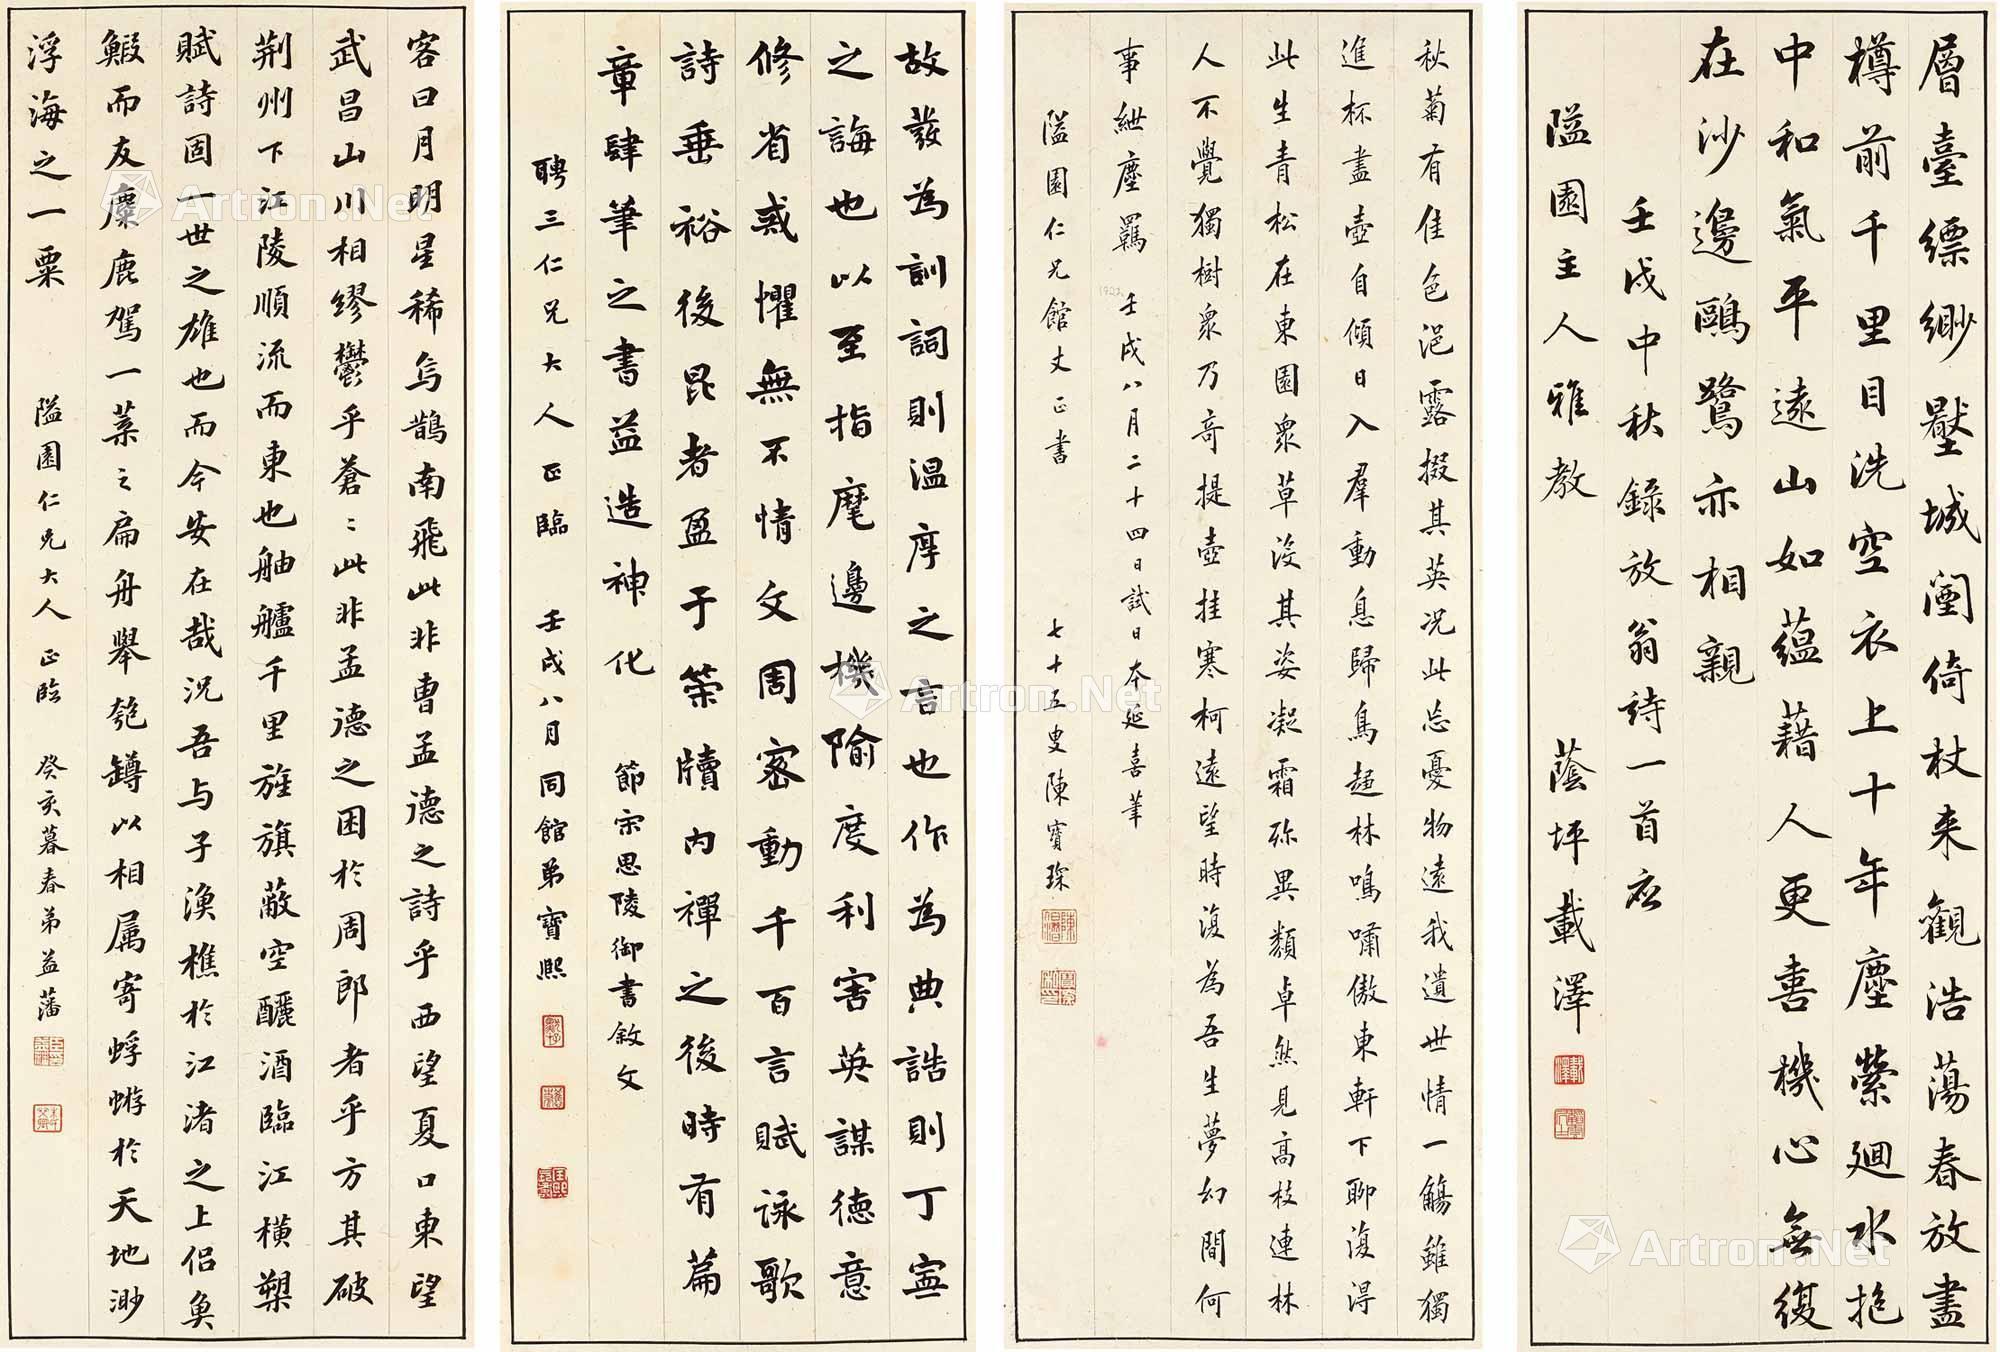 層臺縹緲壓城闉倚杖来觀浩蕩春放盡
樽前千里目洗空衣上十年塵縈廻水抱
中和氣平遠山如蘊藉人更喜機心無復
在沙邊鷗鷺亦相親
壬戌中秋錄放翁詩一首应
隘園主人雅教
蔭坪載澤
秋菊有佳色浥露掇其英況此忘憂物遠我遺世情一觴雖獨
進杯盡壺自傾日入羣動息歸鳥趨林鳴嘯傲東軒下聊復得
此生青松在東園眾草沒其姿凝霜殄異類卓然見高枝連林
人不覺獨樹眾乃奇提壺挂寒柯遠望時復為吾生夢幻間何
事紲塵羈
壬戌八月二十四日試日本延喜筆
隘園仁兄館丈正書
七十五叟陳寶琛
故發為訓詞則温厚之言也作為典誥則丁寍
之誨也以至指麾邊機隃度利害英謀德意
修省或懼無不情文周密動千百言賦詠歌
詩垂裕後昆者盈于䇿牘內禪之後時有篇
章肆筆之書益造神化
節宗思陵御書敘文
聘三仁兄大人正臨
壬戌八月同館弟寶熙
客曰月明星稀烏鵲南飛此非曹孟德之詩乎西望夏口東望
武昌山川相繆鬱乎蒼〻此非孟德之困於周郎者乎方其破
荆州下江陵順流而東也舳艫千里旌旗蔽空釃酒臨江橫槊
賦詩固一世之雄也而今安在哉況吾与子漁樵於江渚之上侣魚
鰕而友麋鹿駕一葉之扁舟舉匏罇以相属寄蜉蝣於天地渺
浮海之一粟
隘園仁兄大人正临
癸亥暮春弟益藩
Artron.Net
Artron.Net
Artron.Net
Artron.Net